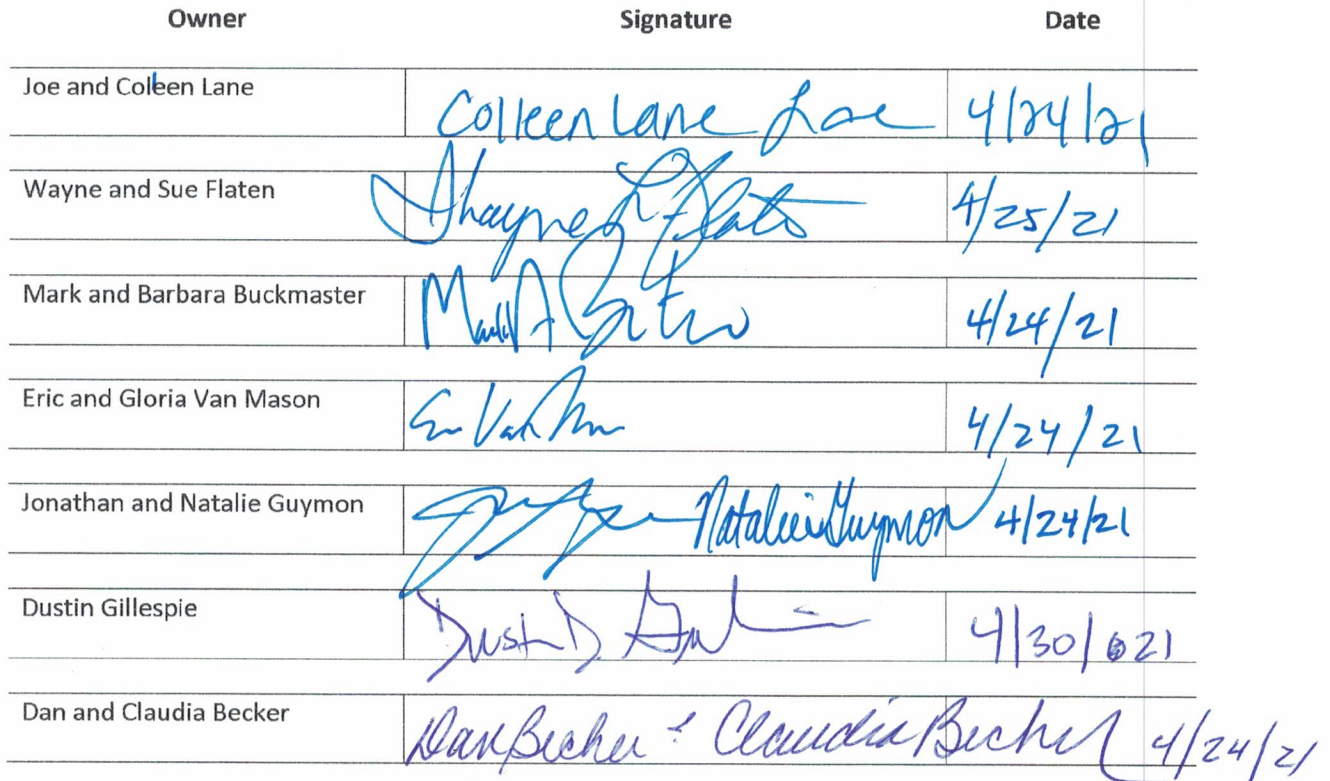 Owner Signature Date
Joe and Colleen Lane Colleen Lane 4/24/21
Wayne and Sue Flaten Thayne L Flaten 4/25/21
Mark and Barbara Buckmaster Mark A 4/24/21
Eric and Gloria Van Mason Eric Van 4/24/21
Jonathan and Natalie Guymon Natalie Guymon 4/24/21
Dustin Gillespie Dustin D 4/30/21
Dan and Claudia Becker Dan Becker & Claudia Becker 4/24/21